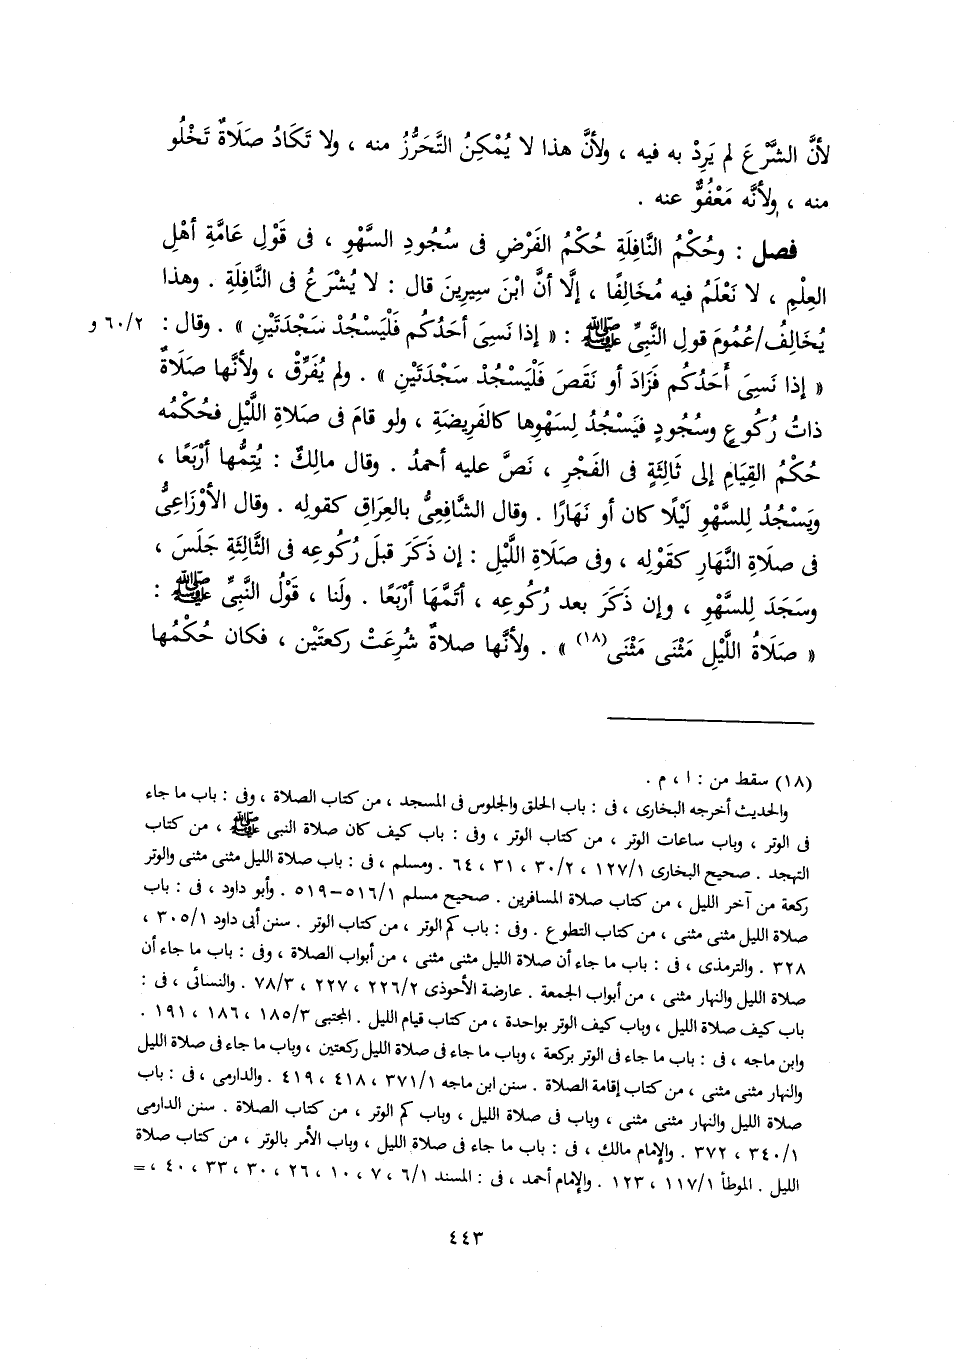 لأنَّ الشَّرْعَ لم يَرِدْ به فيه ، ولأنَّ هذا لا يُمْكِنُ التَّحَرُّزُ منه ، ولا تَكَادُ صَلَاةٌ تَخْلُو
منه ، ولأنَّه مَعْفُوٌّ عنه .
فصل : وحُكْمُ النَّافِلَةِ حُكْمُ الفَرْضِ فى سُجُودِ السَّهْوِ ، فى قَوْلِ عَامَّةِ أهْلِ
العِلْمِ ، لا نَعْلَمُ فيه مُخَالِفًا ، إلَّا أنَّ ابْنَ سِيرِينَ قال : لا يُشْرَعُ فى النَّافِلَةِ . وهذا
يُخَالِفُ/عُمُومَ قولِ النَّبِىِّ ﷺ : « إذا نَسِىَ أحَدُكُم فَلْيَسْجُدْ سَجْدَتَيْنِ » . وقال : ٦٠/٢ و
« إذا نَسِىَ أَحَدُكُم فَزَادَ أو نَقَصَ فَلْيَسْجُدْ سَجْدَتَيْنِ » . ولم يُفَرِّقْ ، ولأنَّها صَلَاةٌ
ذاتُ رُكُوعٍ وسُجُودٍ فيَسْجُدُ لِسَهْوِها كالفَرِيضَةِ ، ولو قامَ فى صَلَاةِ اللَّيْلِ فحُكْمُه
حُكْمُ القِيَامِ إلى ثَالِثَةٍ فى الفَجْرِ ، نَصَّ عليه أحمدُ . وقال مالِكٌ : يُتِمُّها أرْبَعًا ،
ويَسْجُدُ لِلسَّهْوِ لَيْلًا كان أو نَهَارًا . وقال الشَّافِعِىُّ بالعِرَاقِ كقَولِه . وقال الأوْزَاعِىُّ
فى صلاةِ النَّهَارِ كقَوْلِه ، وفى صَلَاةِ اللَّيْلِ : إن ذَكَرَ قبلَ رُكُوعِه فى الثَّالِثَةِ جَلَسَ ،
وسَجَدَ لِلسَّهْوِ ، وإن ذَكَرَ بعد رُكُوعِه ، أتَمَّهَا أرْبَعًا . ولَنا ، قَوْلُ النَّبِىِّ ﷺ :
« صَلَاةُ اللَّيْلِ مَثْنَى مَثْنَى(١٨) » . ولأنَّها صلاةٌ شُرِعَتْ ركعتَيْن ، فكان حُكْمُها
(١٨) سقط من : ا ، م .
والحديث أخرجه البخارى ، فى : باب الحلق والجلوس فى المسجد ، من كتاب الصلاة ، وفى : باب ما جاء
فى الوتر ، وباب ساعات الوتر ، من كتاب الوتر ، وفى : باب كيف كان صلاة النبى ﷺ ، من كتاب
التهجد . صحيح البخارى ١٢٧/١ ، ٣٠/٢ ، ٣١ ، ٦٤ . ومسلم ، فى : باب صلاة الليل مثنى مثنى والوتر
ركعة من آخر الليل ، من كتاب صلاة المسافرين . صحيح مسلم ٥١٦/١–٥١٩ . وأبو داود ، فى : باب
صلاة الليل مثنى مثنى ، من كتاب التطوع . وفى : باب كم الوتر ، من كتاب الوتر . سنن أبى داود ٣٠٥/١ ،
٣٢٨ . والترمذى ، فى : باب ما جاء أن صلاة الليل مثنى مثنى ، من أبواب الصلاة ، وفى : باب ما جاء أن
صلاة الليل والنهار مثنى ، من أبواب الجمعة . عارضة الأحوذى ٢٢٦/٢ ، ٢٢٧ ، ٧٨/٣ . والنسائى ، فى :
باب كيف صلاة الليل ، وباب كيف الوتر بواحدة ، من كتاب قيام الليل . المجتبى ١٨٥/٣ ، ١٨٦ ، ١٩١ .
وابن ماجه ، فى : باب ما جاء فى الوتر بركعة ، وباب ما جاء فى صلاة الليل ركعتين ، وباب ما جاء فى صلاة الليل
والنهار مثنى مثنى ، من كتاب إقامة الصلاة . سنن ابن ماجه ٣٧١/١ ، ٤١٨ ، ٤١٩ . والدارمى ، فى : باب
صلاة الليل والنهار مثنى مثنى ، وباب فى صلاة الليل ، وباب كم الوتر ، من كتاب الصلاة . سنن الدارمى
٣٤٠/١ ، ٣٧٢ . والإمام مالك ، فى : باب ما جاء فى صلاة الليل ، وباب الأمر بالوتر ، من كتاب صلاة
الليل . الموطأ ١١٧/١ ، ١٢٣ . والإمام أحمد ، فى : المسند ٦/١ ، ٧ ، ١٠ ، ٢٦ ، ٣٠ ، ٣٣ ، ٤٠ ، =
٤٤٣